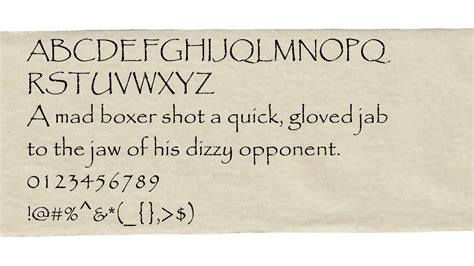 ABCDEFGHIJQLMNOPQ
RSTUVWXYZ
A mad boxer shot a quick, gloved jab
to the jaw of his dizzy opponent.
0123456789
!@#%^&*(_{},>$)